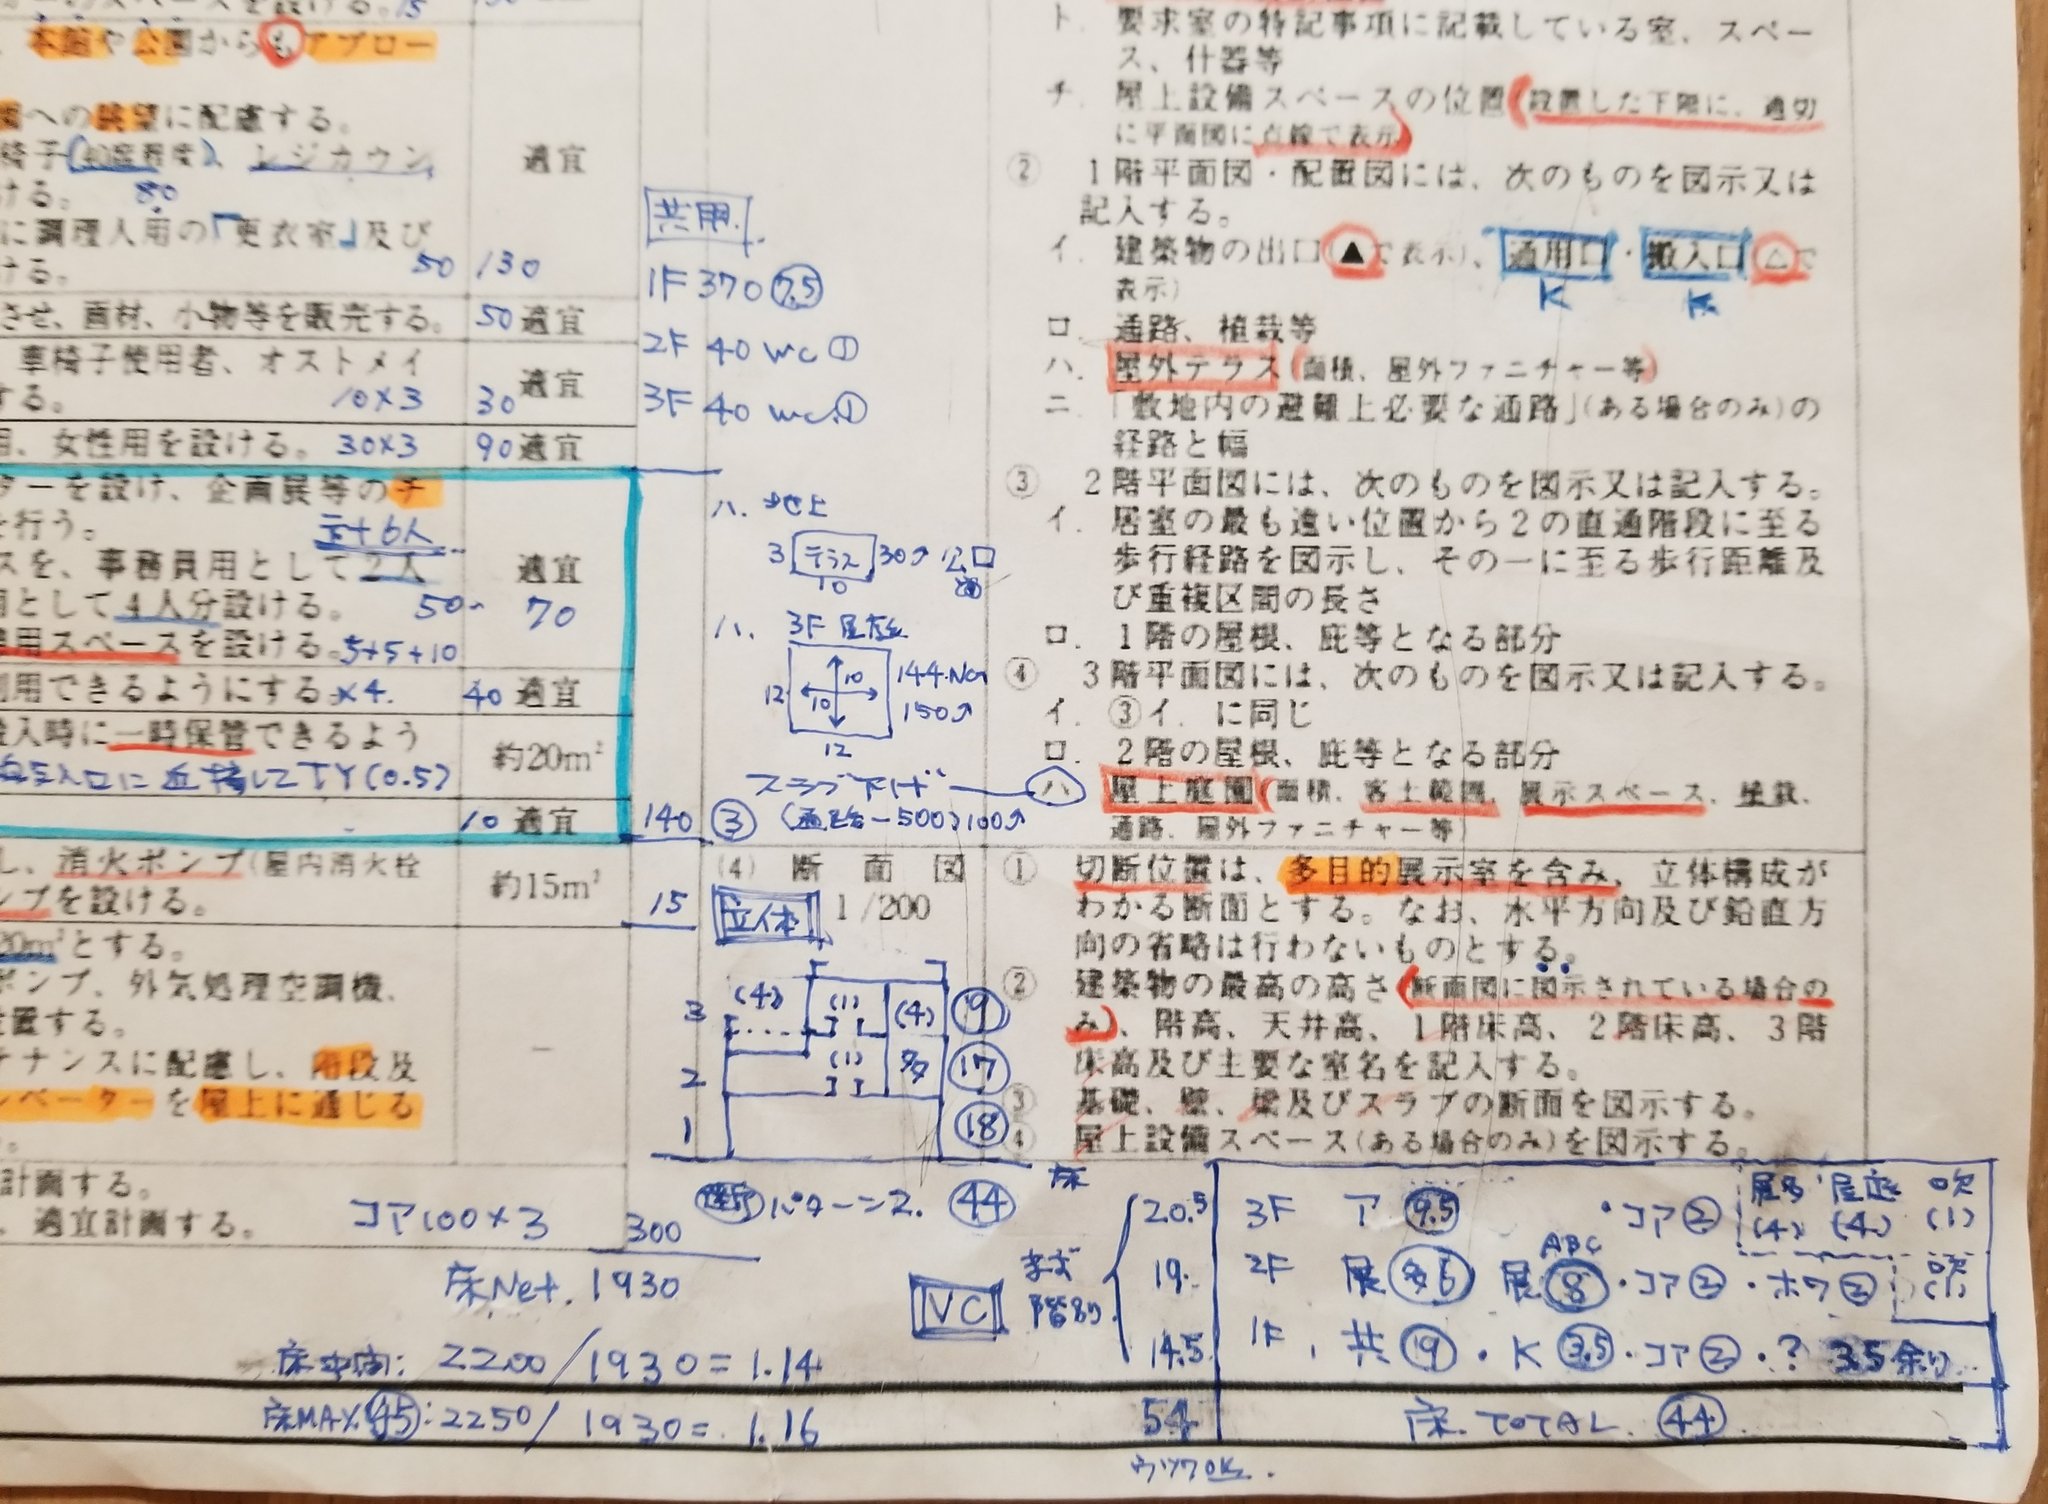 本館や公園からもアプロー
への眺望に配慮する。
椅子(40席程度)、レジカウン
ける。 80
に調理人用の「更衣室」及び
ける。 50 130
適宜
させ、画材、小物等を販売する。 50 適宜
車椅子使用者、オストメイ
する。 10×3 30 適宜
、女性用を設ける。 30×3 90 適宜
ターを設け、企画展等のチ
を行う。
スを、事務員用として2人
として4人分設ける。 50~ 70
適宜
専用スペースを設ける。 5+5+10
利用できるようにする。 ×4. 40 適宜
搬入時に一時保管できるよう
約20m²
に近接してTY(0.5)
10 適宜
140 ③
し、消火ポンプ(屋内消火栓
ンプを設ける。
約15m²
15
20m²とする。
ポンプ、外気処理空調機、
設置する。
テナンスに配慮し、階段及
レベーターを屋上に通じる
計画する。
、適宜計画する。 コア100×3 300
床Net. 1930
2200/1930=1.14
床MAX ㊺:2250/1930=1.16
共用
1F 370 7.5
2F 40 WC ①
3F 40 WC ①
ハ. 地上
3 テラス 30
10
ハ. 3F 屋庭
12 10 10 144.NG
150
12
スラブ下げ
100
(4) 断面図
1/200
立体
3 (4) (1) (4) 19
2 (1) 多 17
1 18
パターン2. 44
ト. 要求室の特記事項に記載している室、スペー
ス、什器等
チ. 屋上設備スペースの位置(設置した下階に、適切
に平面図に点線で表示)
② 1階平面図・配置図には、次のものを図示又は
記入する。
イ. 建築物の出口(▲で表示)、通用口・搬入口(△で
表示)
K K
ロ. 通路、植栽等
ハ. 屋外テラス(面積、屋外ファニチャー等)
ニ. 「敷地内の避難上必要な通路」(ある場合のみ)の
経路と幅
③ 2階平面図には、次のものを図示又は記入する。
イ. 居室の最も遠い位置から2の直通階段に至る
歩行経路を図示し、その一に至る歩行距離及
び重複区間の長さ
ロ. 1階の屋根、庇等となる部分
④ 3階平面図には、次のものを図示又は記入する。
イ. ③イ. に同じ
ロ. 2階の屋根、庇等となる部分
ハ 屋上庭園(面積、客土範囲、展示スペース、植栽、
通路、屋外ファニチャー等)
① 切断位置は、多目的展示室を含み、立体構成が
わかる断面とする。なお、水平方向及び鉛直方
向の省略は行わないものとする。
② 建築物の最高の高さ(断面図に図示されている場合の
み)、階高、天井高、1階床高、2階床高、3階
床高及び主要な室名を記入する。
③ 基礎、壁、梁及びスラブの断面を図示する。
④ 屋上設備スペース(ある場合のみ)を図示する。
床
VC
まず
階別
20.5 3F ア 9.5 ・コア② 展多 屋庭 吹
(4) (4) (1)
19. 2F 展 多6 展 ABC 8・コア②・ホワ② 吹
(1)
14.5 1F, 共⑲・K 3.5・コア②・? 3.5余り
54 床 TOTAL. 44